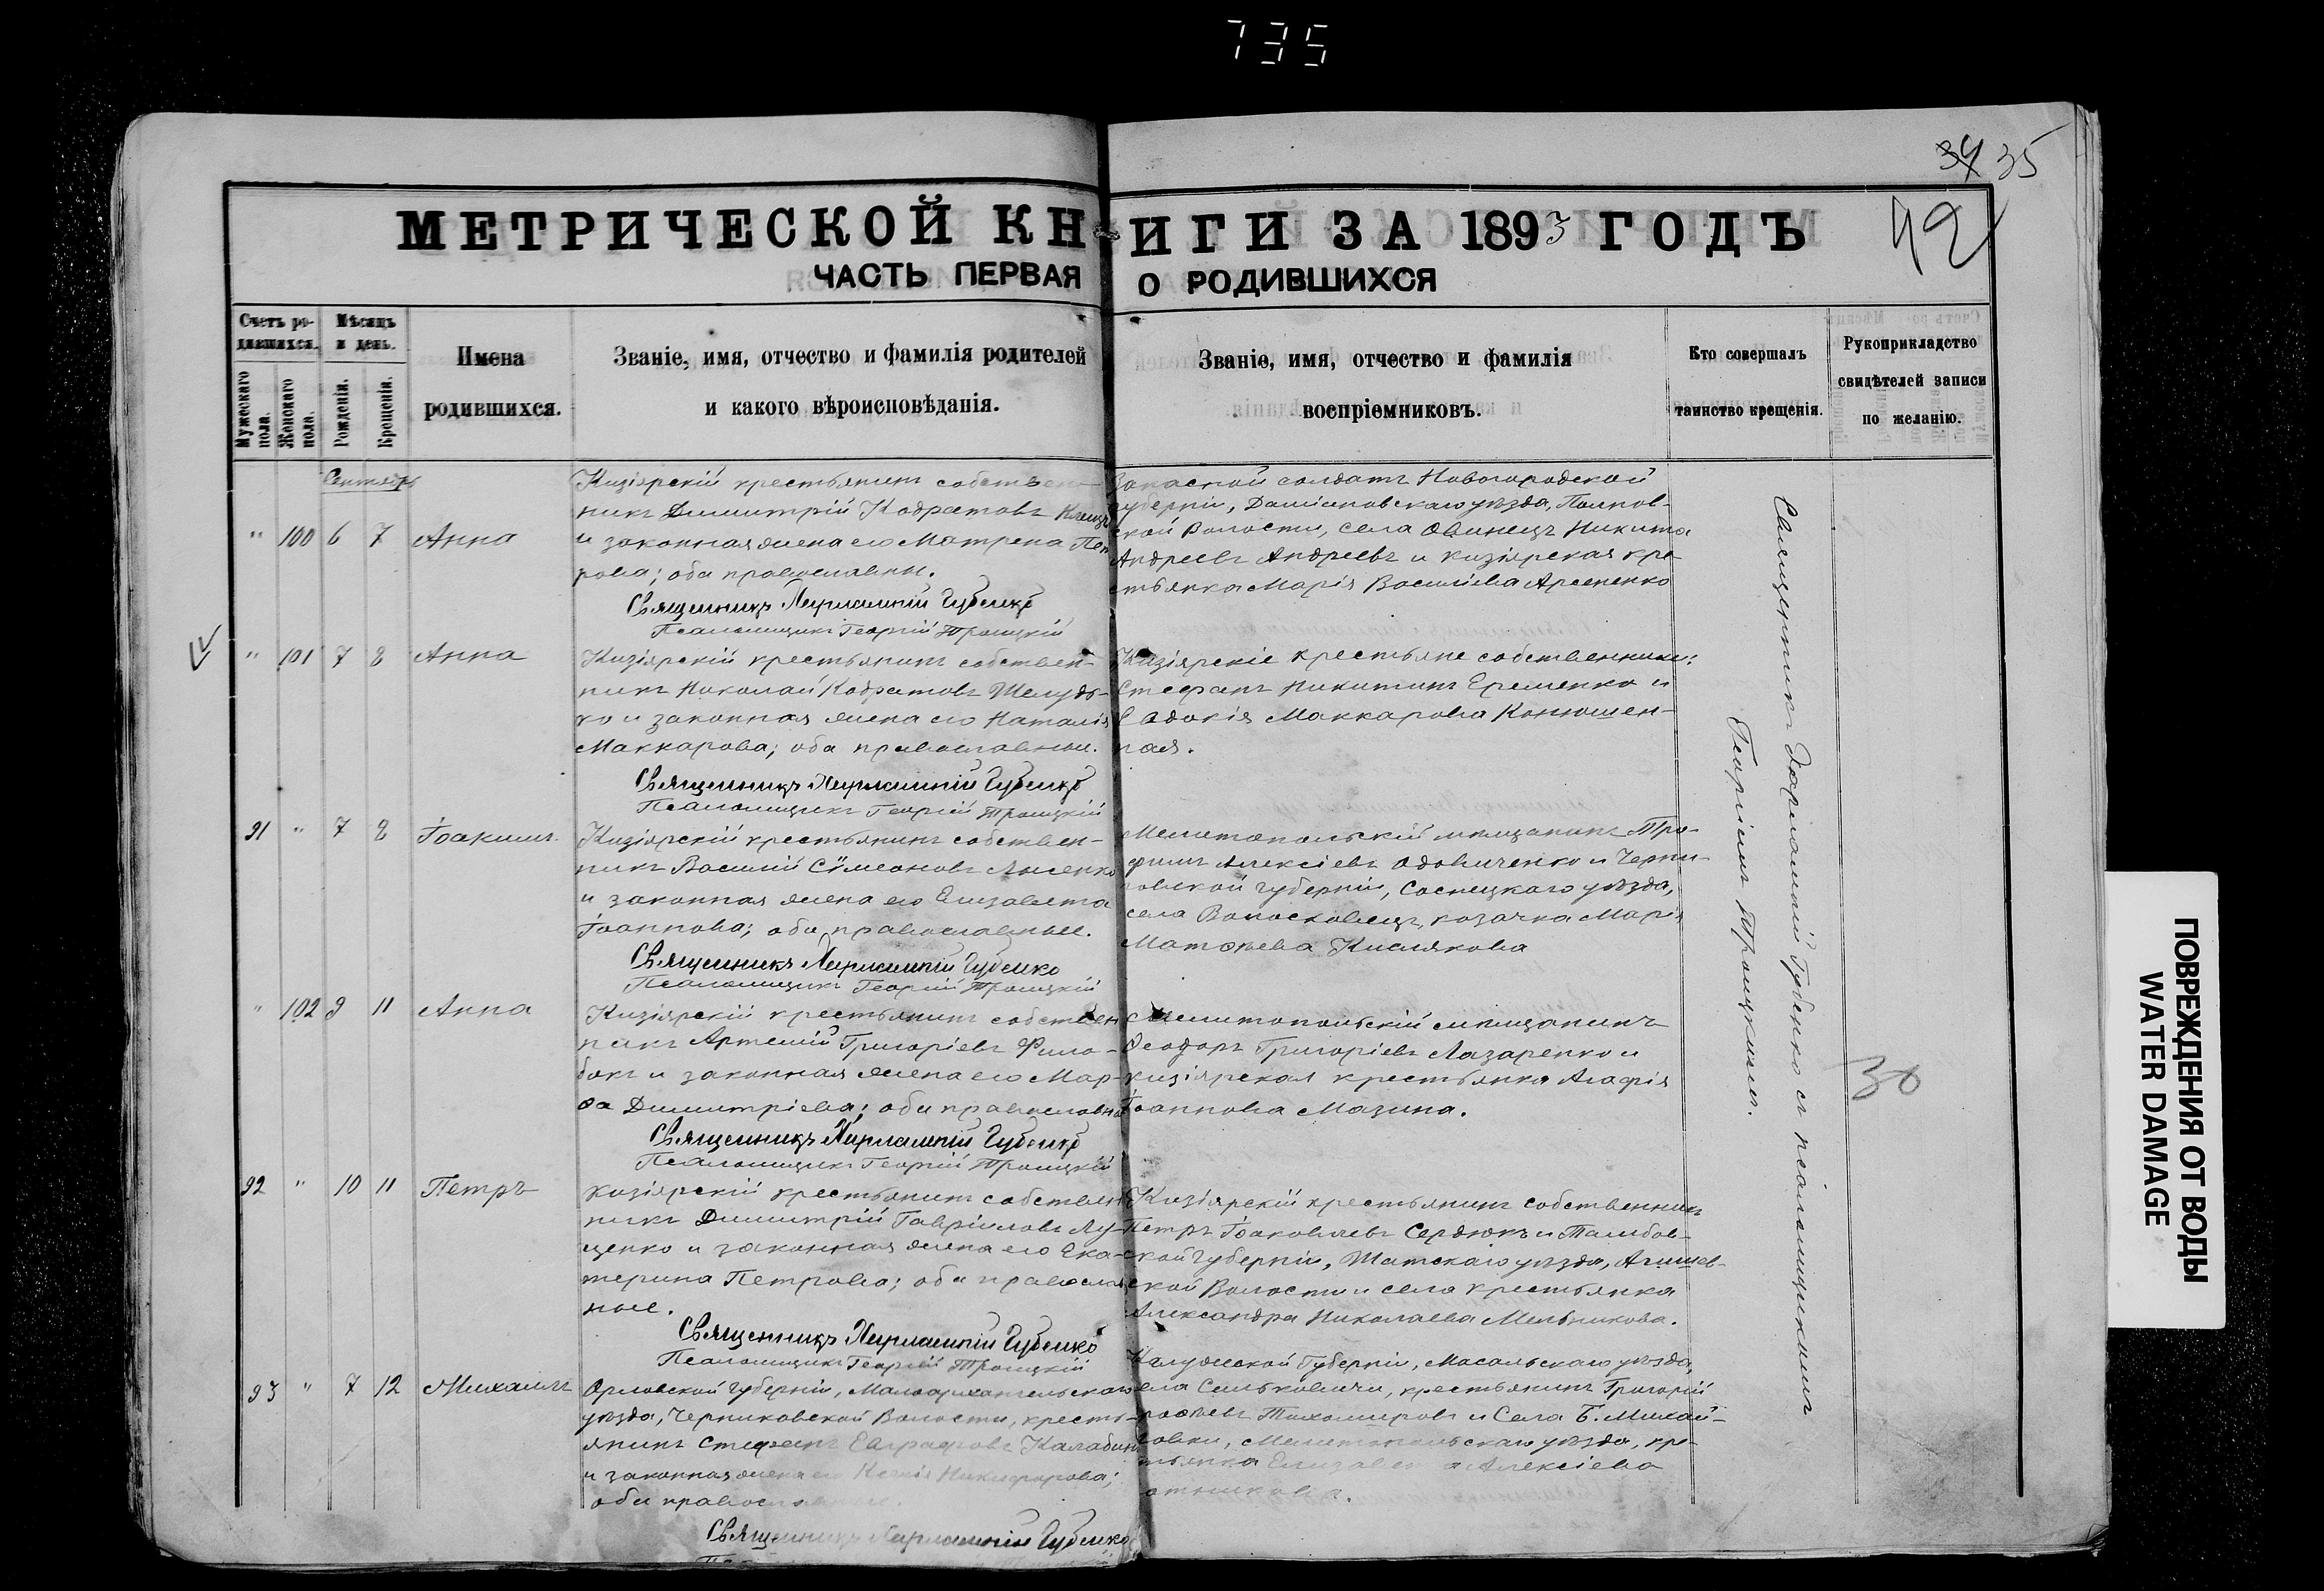 735
34 35
42
МЕТРИЧЕСКОЙ КНИГИ ЗА 1893 ГОДЪ
ЧАСТЬ ПЕРВАЯ О РОДИВШИХСЯ
Счетъ родившихся.
Мужескаго пола.
Женскаго пола.
Мѣсяцъ и день.
Рожденія.
Крещенія.
Имена
родившихся.
Званіе, имя, отчество и фамилія родителей
и какого вѣроисповѣданія.
Званіе, имя, отчество и фамилія
воспріемниковъ.
Кто совершалъ
таинство крещенія.
Рукоприкладство
свидѣтелей записи
по желанію.
Сентябрь
" 100 6 7 Анна
Кизіярскій крестьянинъ собствен-
никъ Димитрій Кодратовъ
и законная жена его Матрена Пет
рова; оба православны.
Священникъ Харлампій Губенко
Псаломщикъ Георгій Троицкій
Запасной солдатъ Новогородской
губерніи, уѣзда,
ской Волости, села Овинецъ Никита
Андреевъ Андреевъ и кизіярская кре-
стьянка Марія Василіева Арсененко
" 101 7 8 Анна
Кизіярскій крестьянинъ собствен-
никъ Николай Кодратовъ Шелудь-
ко и законная жена его Наталія
Маккарова; оба православные.
Священникъ Харлампій Губенко
Псаломщикъ Георгій Троицкій
Кизіярскіе крестьяне собственники:
Стефанъ Никитинъ Еременко и
Евдокія Маккарова Конюшен-
ная.
91 " 7 8 Іоакимъ.
Кизіярскій крестьянинъ собствен-
никъ Василій Сѵмеоновъ Лысенко
и законная жена его Елизавета
Іоаннова; оба православные.
Священникъ Харлампій Губенко
Псаломщикъ Георгій Троицкій
Мелитопольскій мѣщанинъ Тро-
фимъ Алексіевъ Одовиченко и Черни-
говской губерніи, Сосницкаго уѣзда,
села Волосковецъ, козачка Марія
Матѳеева Кислякова
" 102 9 11 Анна
Кизіярскій крестьянинъ собствен
никъ Артемій Григоріевъ Фило-
бокъ и законная жена его Мар-
ѳа Димитріева; оба православны
Священникъ Харлампій Губенко
Псаломщикъ Георгій Троицкій
Мелитопольскій мѣщанинъ
Ѳеодоръ Григоріевъ Лазаренко и
кизіярская крестьянка Агафія
Іоаннова Мазина.
92 " 10 11 Петръ
Кизіярскій крестьянинъ собствен
никъ Димитрій Гавріиловъ Лу-
ценко и законная жена его Ека-
терина Петрова; оба православ
ные.
Священникъ Харлампій Губенко
Псаломщикъ Георгій Троицкій
Кизіярскій крестьянинъ собственникъ
Петръ Іоаковлевъ Сердюкъ и Тамбов-
ской губерніи, Шатскаго уѣзда,
ской Волости и села крестьянка
Александра Николаева Мельникова.
93 " 7 12 Михаилъ
Орловской губерніи, Малоархангельскаго
уѣзда, Черниковской Волости, кресть-
янинъ Стефанъ Евграфовъ Калабинъ
и законная жена его Ксенія Никифорова;
оба православные.
Священникъ Харлампій Губенко
Калужской губерніи, Масальскаго уѣзда,
села Сильковичи, крестьянинъ Григорій
Тихомировъ и Села Б. Михай-
ловки, Мелитопольскаго уѣзда, кре-
стьянка Елизавета Алексіева
Священникъ Харлампій Губенко съ псаломщикомъ
Георгіемъ Троицкимъ.
30
ПОВРЕЖДЕНИЯ ОТ ВОДЫ
WATER DAMAGE